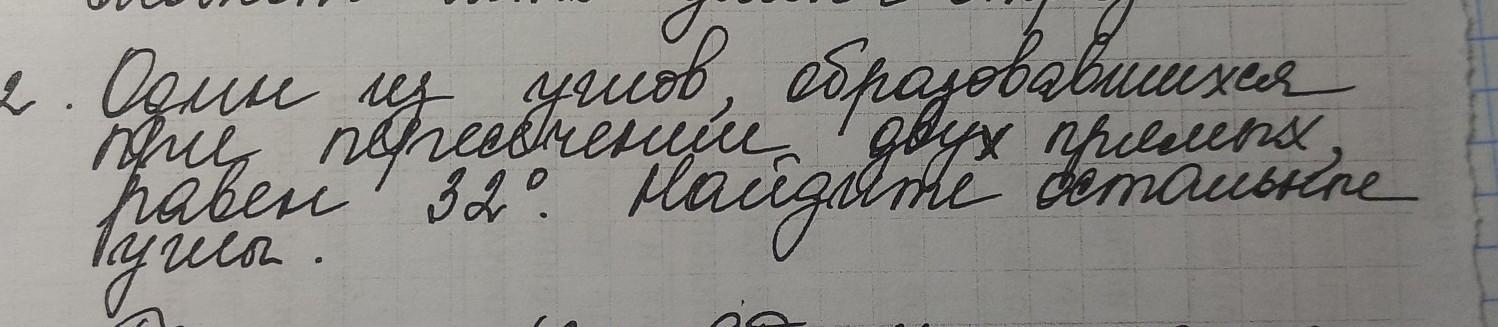 2. Один из углов, образовавшихся
при пересечении двух прямых,
равен 32°. Найдите остальные
углы.